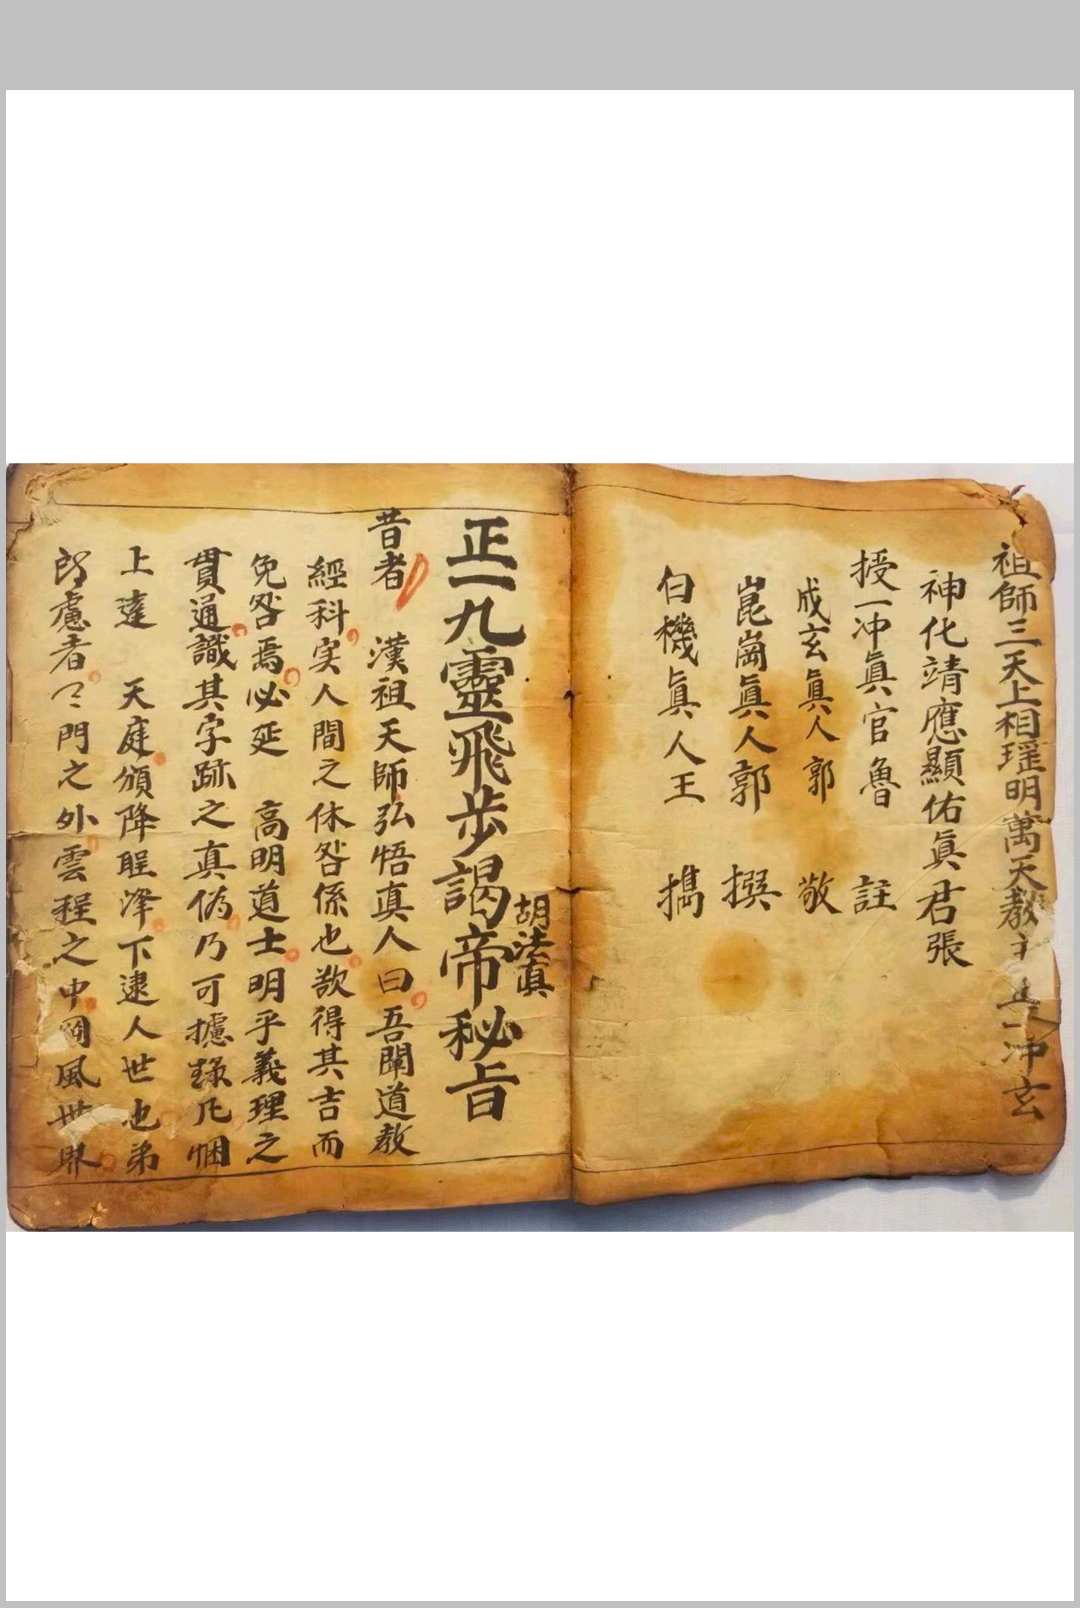 祖師三天上相瑤明萬天教主正一冲玄
神化靖應顯佑眞君張
授一冲眞官魯 註
成玄眞人郭 敬
崑崗眞人郭 撰
白機眞人王 擕
正一九靈飛步謁帝秘旨
胡法眞
昔者 漢祖天師弘悟真人曰吾闡道教
經科実人間之休咎係也欲得其吉而
免咎焉必延 高明道士明乎義理之
貫通識其字跡之真偽乃可據錄凡悃
上達 天庭頒降 下逮人世也弟
慮者 門之外雲程之中 風世界